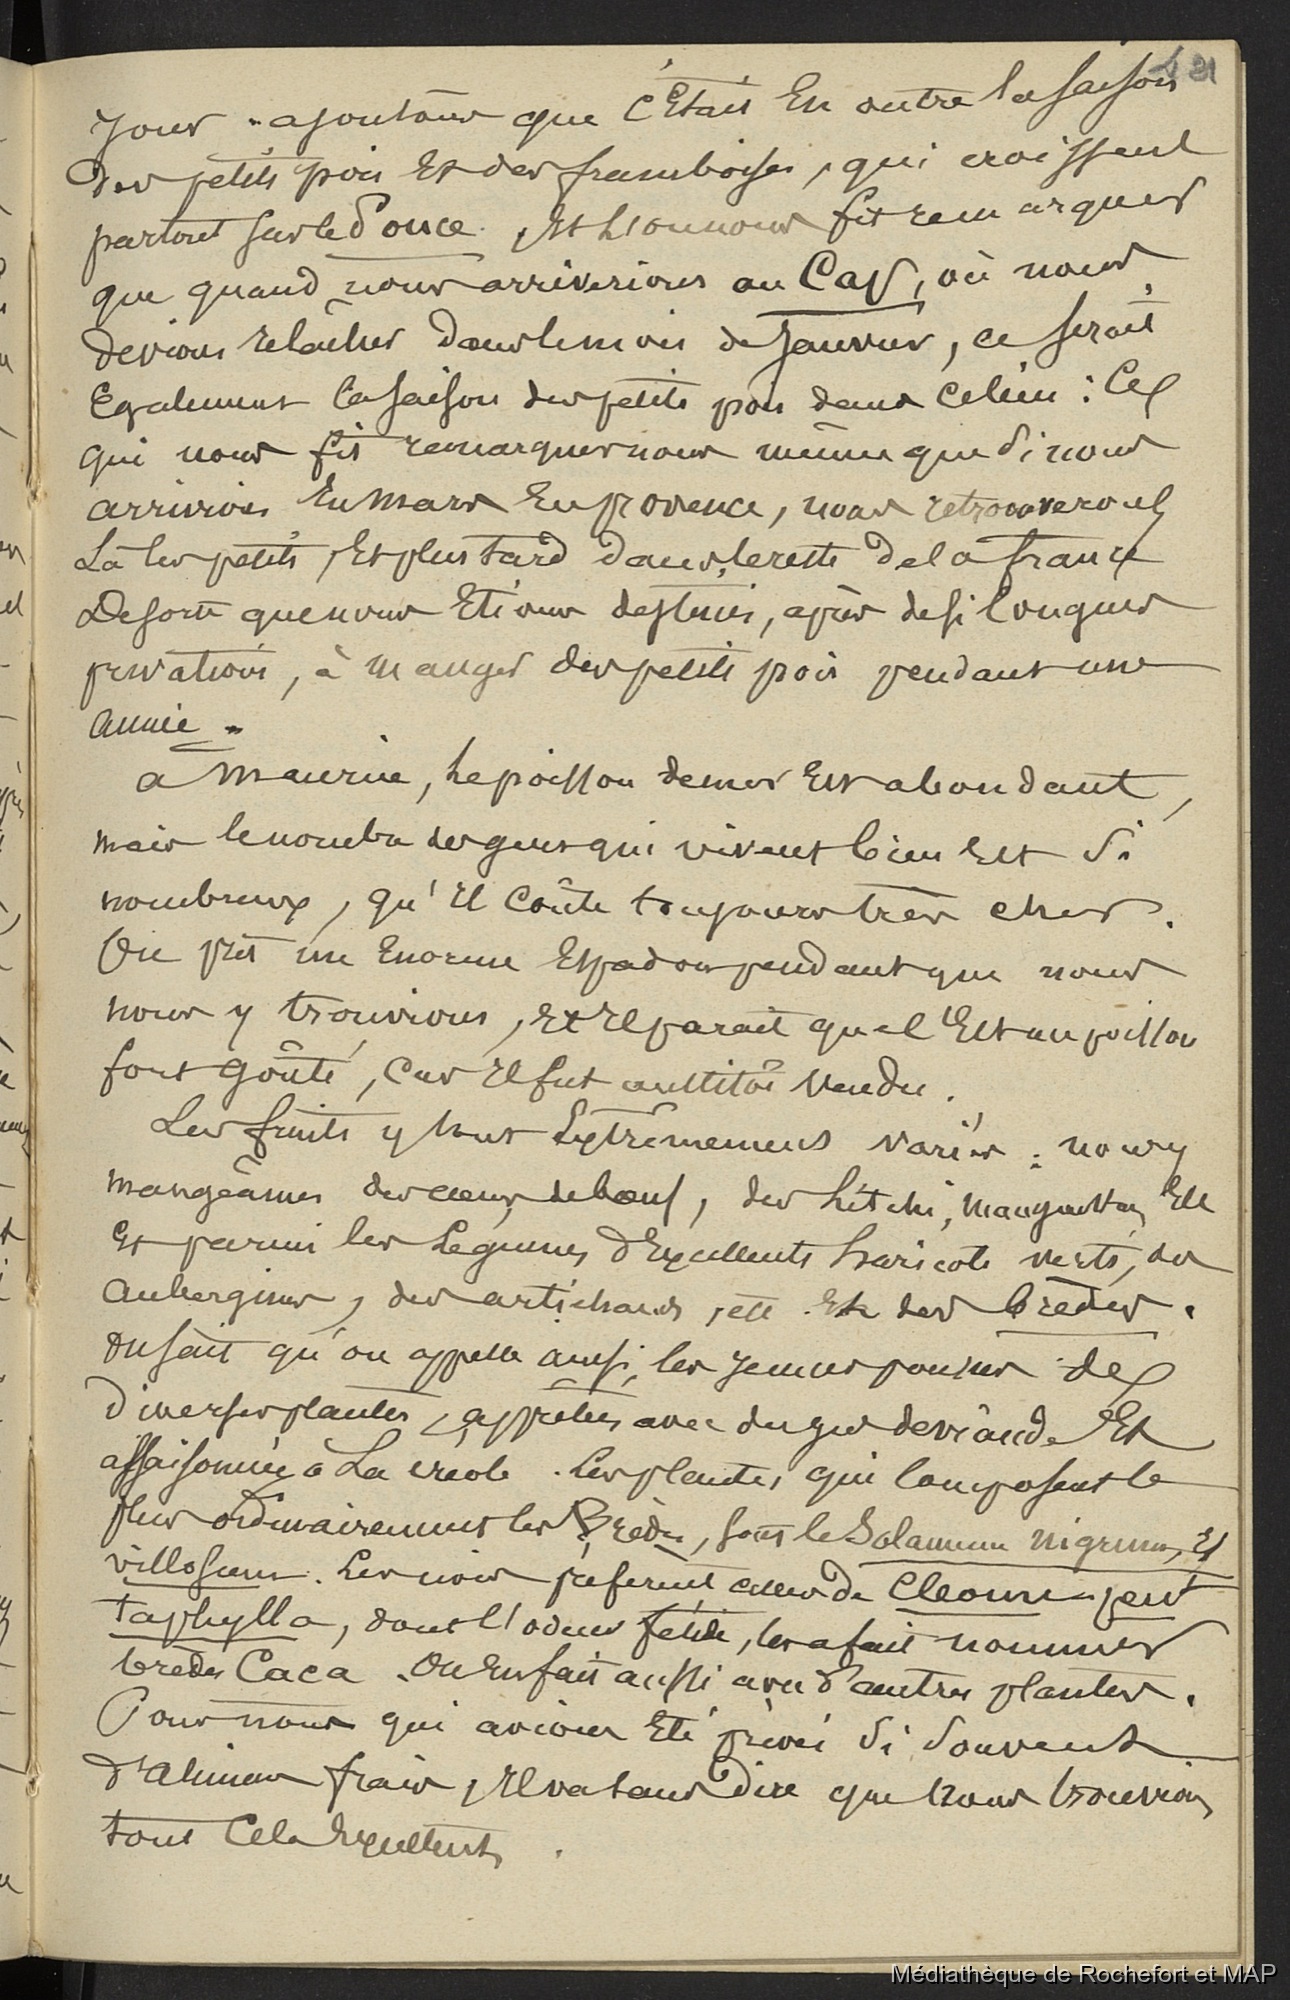 jour - ajoutons que c'était En outre la saison
des petits pois Et des framboises, qui croissent
partout sur le Pouce. Et l'on nous fit remarquer
que quand nous arriverions au Cap, où nous
devions relâcher dans le mois de Janvier, ce serait
Egalement la saison des petits pois dans ce lieu : Ce
qui nous fit remarquer nous même que si nous
arrivions En Mars En provence, nous retrouverons
Là les petits, Et plus tard dans le reste de la france
De sorte que nous Etions destinés, après de si longues
privations, à manger des petits pois pendant une
année -
à Maurice, Le poisson de mer Est abondant,
mais le nombre des gens qui vivent bien Est si
nombreux, qu'il coûte toujours très cher.
On prit un Enorme Espadon pendant que nous
nous y trouvions, Et il parait que c'Est un poisson
fort goûté, Car il fut aussitôt vendu.
Les fruits y sont Extrêmement variés : nous y
mangeâmes des cœurs de bœuf, des Litchi, mangoustan, Etc
Et parmi les Légumes d'Excellents haricots verts, des
aubergines, des artichauds, etc. Et des brèdes.
On sait qu'on appelle ainsi, les jeunes pousses de
diverses plantes, apprêtées avec du jus de viande Et
assaisonnées à La créole. Les plantes qui composent le
plus ordinairement les Brèdes, sont le Solanum nigrum, Et
villosum. Les noirs préfèrent celles de Cleome pent
taphylla, dont l'odeur fétide, les a fait nommer
brèdes Caca. On En fait aussi avec d'autres plantes.
Pour nous qui avions Eté privés si souvent
d'aliment frais, il va sans dire que nous trouvions
tout Cela Excellent.
Médiathèque de Rochefort et MAP